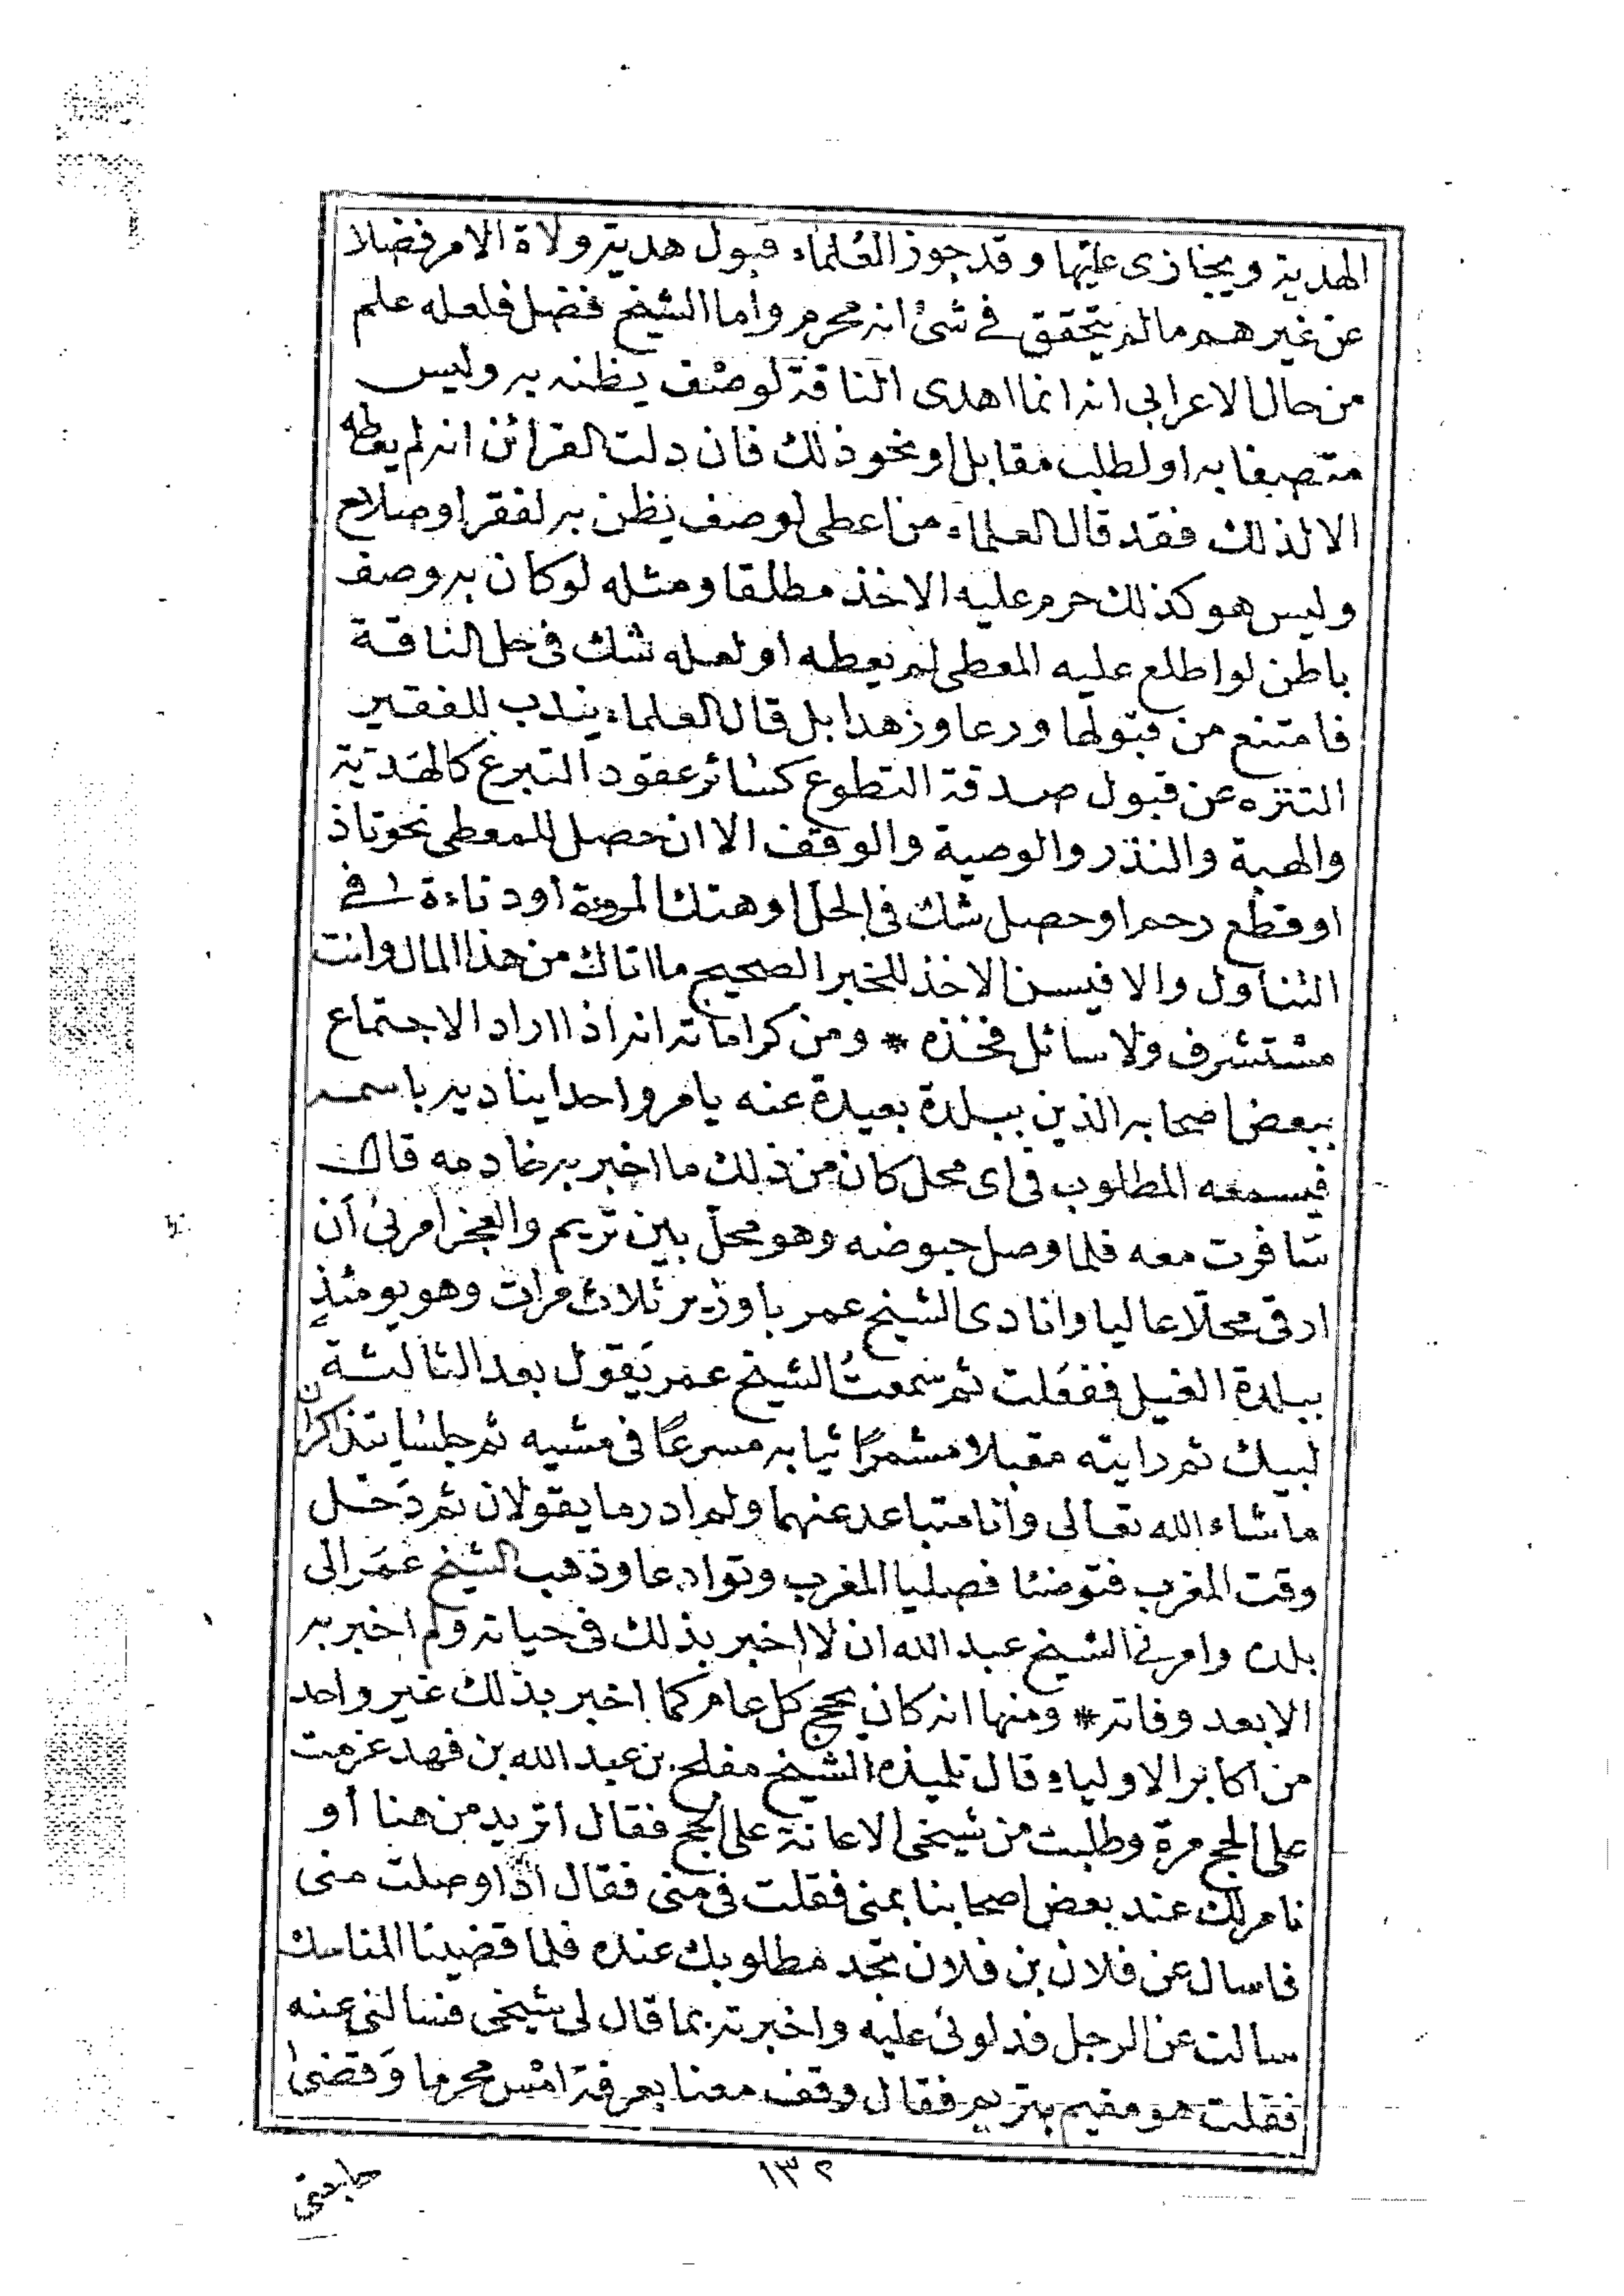 الهدية ويجازى عليها وقد جوز العلماء قبول هدية ولاة الامر فضلا
عن غيرهم ما لم يتحقق فى شئ انه محرم واما الشيخ فضل فلعله علم
من حال الاعرابى انه انما اهدى الناقة لوصف يظنه به وليس
متصفا به او لطلب مقابل او نحو ذلك فان دلت القرائن انه لم يعطه
الا لذلك فقد قال العلماء من اعطى لوصف يظن به لفقر او صلاح
وليس هو كذلك حرم عليه الاخذ مطلقا ومثله لو كان به وصف
باطن لو اطلع عليه المعطى لم يعطه او لعله شك فى حل الناقة
فامتنع من قبولها ورعا وزهدا بل قال العلماء يندب للفقير
التنزه عن قبول صدقة التطوع كسائر عقود التبرع كالهدية
والهبة والنذر والوصية والوقف الا ان حصل للمعطى نحو تاذ
او قطع رحم او حصل شك فى الحل او هتك المروة او دناءة فى
التناول والا فيسن الاخذ للخبر الصحيح ما اتاك من هذا المال وانت
مستشرف ولا سائل فخذه * ومن كراماته انه اذا اراد الاجتماع
ببعض اصحابه الذين ببلدة بعيدة عنه يامر واحدا يناديه باسمه
فيسمعه المطلوب فى اى محل كان من ذلك ما اخبر به خادمه قال
سافرت معه فلما وصل حبوضه وهو محل بين تريم والعجز امرنى أن
ارقى محلا عاليا وانادى الشيخ عمر باوزير ثلاث مرات وهو يومئذ
ببلدة الغيل ففعلت ثم سمعت الشيخ عمر يقول بعد الثالثة
لبيك ثم رايته مقبلا مشمرًا ثيابه مسرعًا فى مشيه ثم جلسا يتذاكران
ما شاء الله تعالى وأنا متباعد عنهما ولم ادر ما يقولان ثم دخل
وقت المغرب فتوضئا فصليا المغرب وتوادعا وذهب الشيخ عمر الى
بلده وامرنى الشيخ عبد الله ان لا اخبر بذلك فى حياته ولم اخبر به
الا بعد وفاته * ومنها انه كان يحج كل عام كما اخبر بذلك غير واحد
من اكابر الاولياء وقال تلميذه الشيخ مفلح بن عبد الله بن فهد عزمت
على الحج مرة وطلبت من شيخى الاعانة على الحج فقال أتريد من هنا أو
نامر لك عند بعض اصحابنا بمنى فقلت فى منى فقال اذا وصلت منى
فاسال عن فلان بن فلان تجد مطلوبك عنده فلما قضينا المناسك
سالت عن الرجل فدلونى عليه واخبرته بما قال لى شيخى فسالنى عنه
فقلت هو مقيم بتريم فقال وقف معنا بعرفة امس محرما وقضى
١٣٢